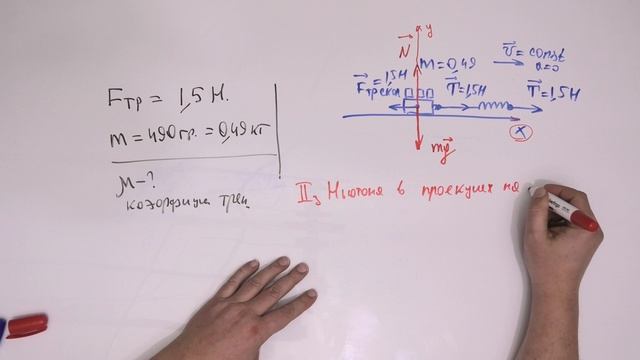 Fтр = 1,5 Н.
m = 490 гр. = 0,49 кг
μ - ?
коэффицие трен
y
N
m = 0,49
v = const
a = 0
= 1,5 Н
Fтрека
T = 1,5 Н
T = 1,5 Н
x
mg
II з Ньютона в проекциях на